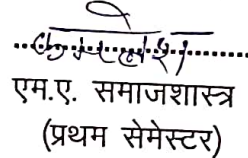 एम.ए. समाजशास्त्र
(प्रथम सेमेस्टर)